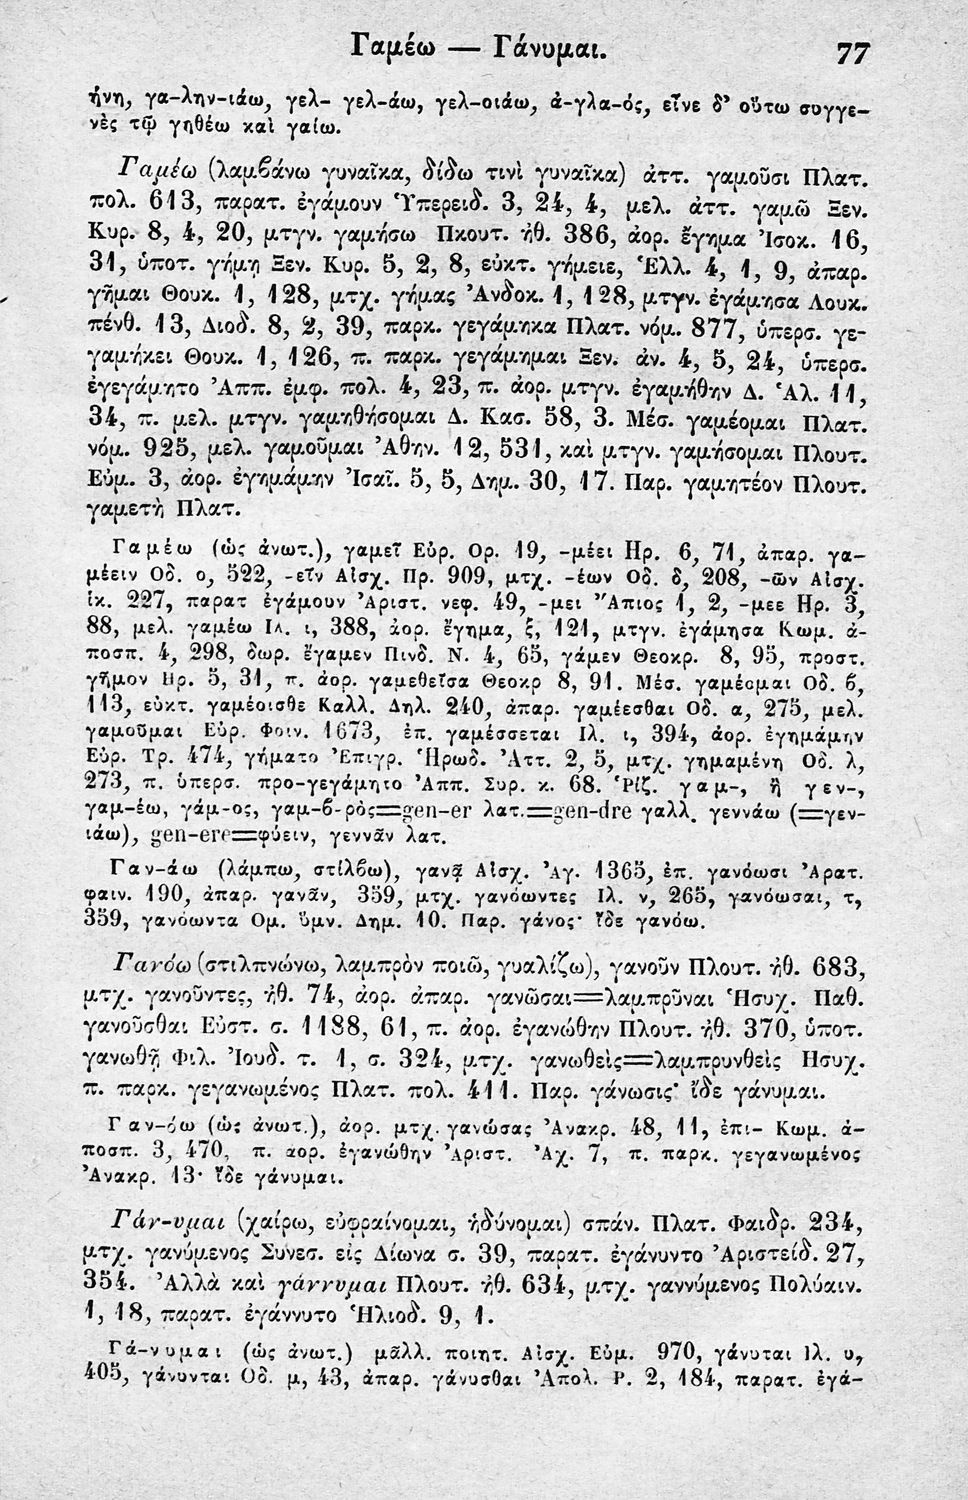 Γαμέω — Γάνυμαι. 77
ήνη, γα-λην-ιάω, γελ- γελ-άω, γελ-οιάω, ἀ-γλα-ός, εἶνε δ' οὕτω συγγε-
νὲς τῷ γηθέω καὶ γαίω.
Γαμέω (λαμβάνω γυναῖκα, δίδω τινὶ γυναῖκα) ἀττ. γαμοῦσι Πλατ.
πολ. 613, παρατ. ἐγάμουν Ὑπερειδ. 3, 24, 4, μελ. ἀττ. γαμῶ Ξεν.
Κυρ. 8, 4, 20, μτγν. γαμήσω Πκουτ. ἠθ. 386, ἀορ. ἔγημα Ἰσοκ. 16,
31, ὑποτ. γήμῃ Ξεν. Κυρ. 5, 2, 8, εὐκτ. γήμειε, Ἑλλ. 4, 1, 9, ἀπαρ.
γῆμαι Θουκ. 1, 128, μτχ. γήμας Ἀνδοκ. 1, 128, μτγν. ἐγάμησα Λουκ.
πένθ. 13, Διοδ. 8, 2, 39, παρκ. γεγάμηκα Πλατ. νόμ. 877, ὑπερσ. γε-
γαμήκει Θουκ. 1, 126, π. παρκ. γεγάμημαι Ξεν. ἀν. 4, 5, 24, ὑπερσ.
ἐγεγάμητο Ἀππ. ἐμφ. πολ. 4, 23, π. ἀορ. μτγν. ἐγαμήθην Δ. Ἁλ. 11,
34, π. μελ. μτγν. γαμηθήσομαι Δ. Κασ. 58, 3. Μέσ. γαμέομαι Πλατ.
νόμ. 925, μελ. γαμοῦμαι Ἀθην. 12, 531, καὶ μτγν. γαμήσομαι Πλουτ.
Εὐμ. 3, ἀορ. ἐγημάμην Ἰσαῖ. 5, 5, Δημ. 30, 17. Παρ. γαμητέον Πλουτ.
γαμετὴ Πλατ.
Γαμέω (ὡς ἀνωτ.), γαμεῖ Εὐρ. Ορ. 19, -μέει Ηρ. 6, 71, ἀπαρ. γα-
μέειν Οδ. ο, 522, -εῖν Αἰσχ. Πρ. 909, μτχ. -έων Οδ. δ, 208, -ῶν Αἰσχ.
ἱκ. 227, παρατ ἐγάμουν Ἀριστ. νεφ. 49, -μει Ἄπιος 1, 2, -μεε Ηρ. 3,
88, μελ. γαμέω Ιλ. ι, 388, ἀορ. ἔγημα, ξ, 121, μτγν. ἐγάμησα Κωμ. ἀ-
ποσπ. 4, 298, δωρ. ἔγαμεν Πινδ. Ν. 4, 65, γάμεν Θεοκρ. 8, 95, προστ.
γῆμον Ηρ. 5, 31, π. ἀορ. γαμεθεῖσα Θεοκρ 8, 91. Μέσ. γαμέομαι Οδ. β,
113, εὐκτ. γαμέοισθε Καλλ. Δηλ. 240, ἀπαρ. γαμέεσθαι Οδ. α, 275, μελ.
γαμοῦμαι Εὐρ. Φοιν. 1673, ἐπ. γαμέσσεται Ιλ. ι, 394, ἀορ. ἐγημάμην
Εὐρ. Τρ. 474, γήματο Ἐπιγρ. Ἡρωδ. Ἀττ. 2, 5, μτχ. γημαμένη Οδ. λ,
273, π. ὑπερσ. προ-γεγάμητο Ἀππ. Συρ. κ. 68. Ῥίζ. γαμ-, ἢ γεν-,
γαμ-έω, γάμ-ος, γαμ-β-ρὸς=gen-er λατ.=gen-dre γαλλ. γεννάω (=γεν-
ιάω), gen-ere=φύειν, γεννᾶν λατ.
Γαν-άω (λάμπω, στίλβω), γανᾷ Αἰσχ. Ἀγ. 1365, ἐπ. γανόωσι Ἀρατ.
φαιν. 190, ἀπαρ. γανᾶν, 359, μτχ. γανόωντες Ιλ. ν, 265, γανόωσαι, τ,
359, γανόωντα Ομ. ὕμν. Δημ. 10. Παρ. γάνος· ἴδε γανόω.
Γανόω (στιλπνώνω, λαμπρὸν ποιῶ, γυαλίζω), γανοῦν Πλουτ. ἠθ. 683,
μτχ. γανοῦντες, ἠθ. 74, ἀορ. ἀπαρ. γανῶσαι=λαμπρῦναι Ἡσυχ. Παθ.
γανοῦσθαι Εὐστ. σ. 1188, 61, π. ἀορ. ἐγανώθην Πλουτ. ἠθ. 370, ὑποτ.
γανωθῇ Φιλ. Ἰουδ. τ. 1, σ. 324, μτχ. γανωθεὶς=λαμπρυνθεὶς Ησυχ.
π. παρκ. γεγανωμένος Πλατ. πολ. 411. Παρ. γάνωσις· ἴδε γάνυμαι.
Γαν-όω (ὡς ἀνωτ.), ἀορ. μτχ. γανώσας Ἀνακρ. 48, 11, ἐπι- Κωμ. ἀ-
ποσπ. 3, 470, π. ἀορ. ἐγανώθην Ἀριστ. Ἀχ. 7, π. παρκ. γεγανωμένος
Ἀνακρ. 13· ἴδε γάνυμαι.
Γάν-υμαι (χαίρω, εὐφραίνομαι, ἡδύνομαι) σπάν. Πλατ. Φαιδρ. 234,
μτχ. γανύμενος Συνεσ. εἰς Δίωνα σ. 39, παρατ. ἐγάνυντο Ἀριστείδ. 27,
354. Ἀλλὰ καὶ γάννυμαι Πλουτ. ἠθ. 634, μτχ. γαννύμενος Πολύαιν.
1, 18, παρατ. ἐγάννυτο Ἡλιοδ. 9, 1.
Γά-νυμαι (ὡς ἀνωτ.) μᾶλλ. ποιητ. Αἰσχ. Εὐμ. 970, γάνυται Ιλ. υ,
405, γάνυνται Οδ. μ, 43, ἀπαρ. γάνυσθαι Ἀπολ. Ρ. 2, 184, παρατ. ἐγά-